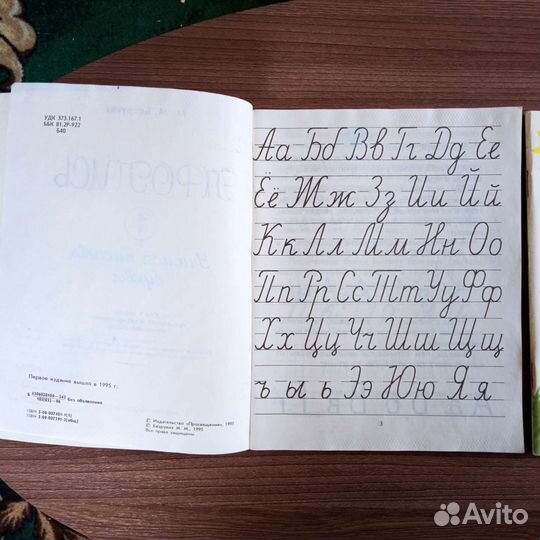 УДК 373.167.1
ББК 81.2Р-922
Б40
Первое издание вышло в 1995 г.
без объявления
© Издательство «Просвещение», 1995
© Безруких М. М., 1995
Все права защищены
Аа Бб Вв Гг Дд Ее
Ёё Жж Зз Ии Йй
Кк Лл Мм Нн Оо
Пп Рр Сс Тт Уу Фф
Хх Цц Чч Шш Щщ
ъ ы ь Ээ Юю Яя
3
Avito